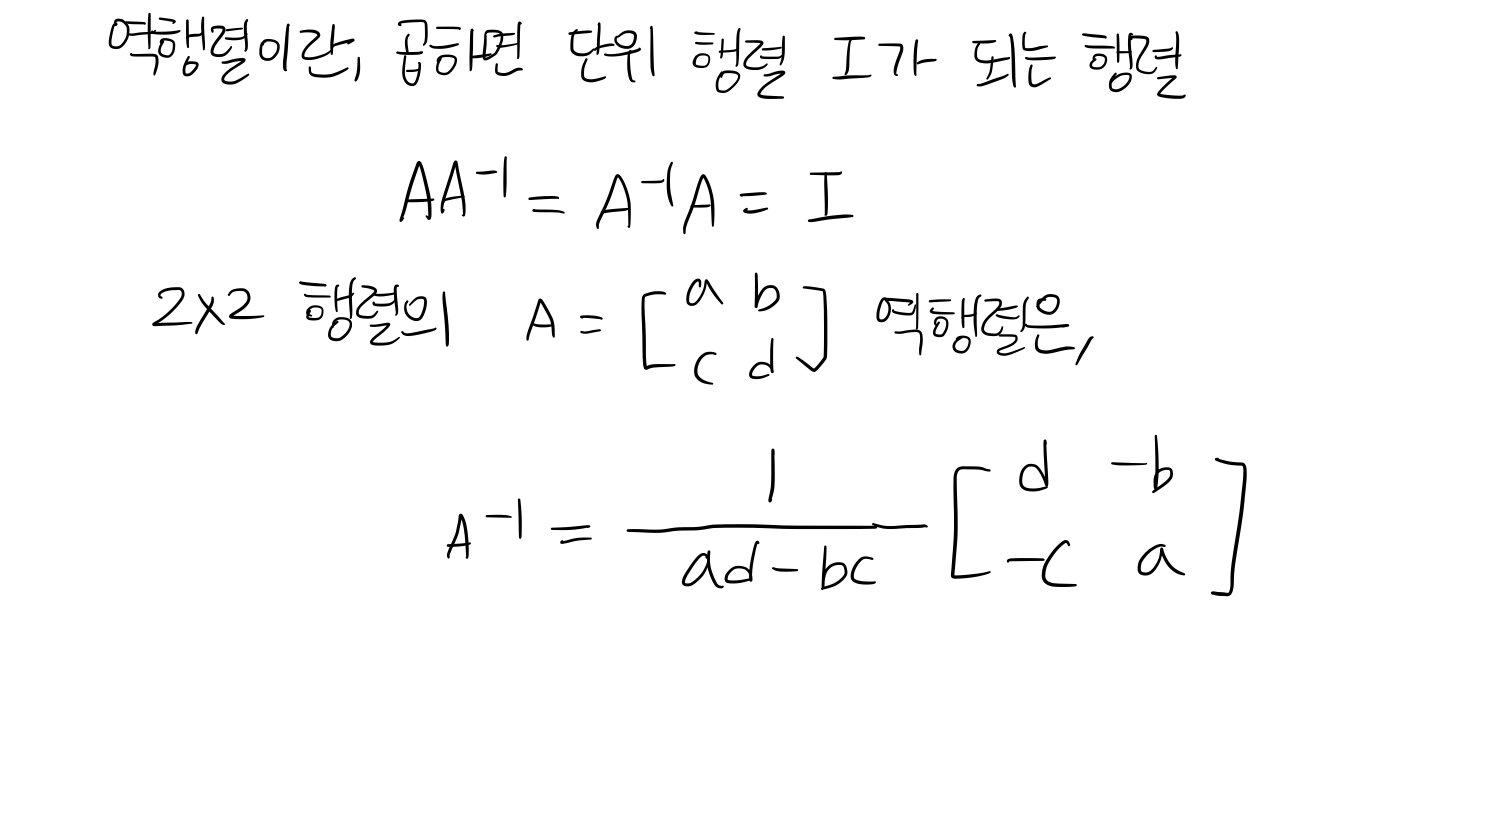 역행렬이란, 곱하면 단위 행렬 I가 되는 행렬
AA⁻¹ = A⁻¹A = I
2x2 행렬의 A = [a b; c d] 역행렬은,
A⁻¹ = 1/(ad-bc) [d -b; -c a]